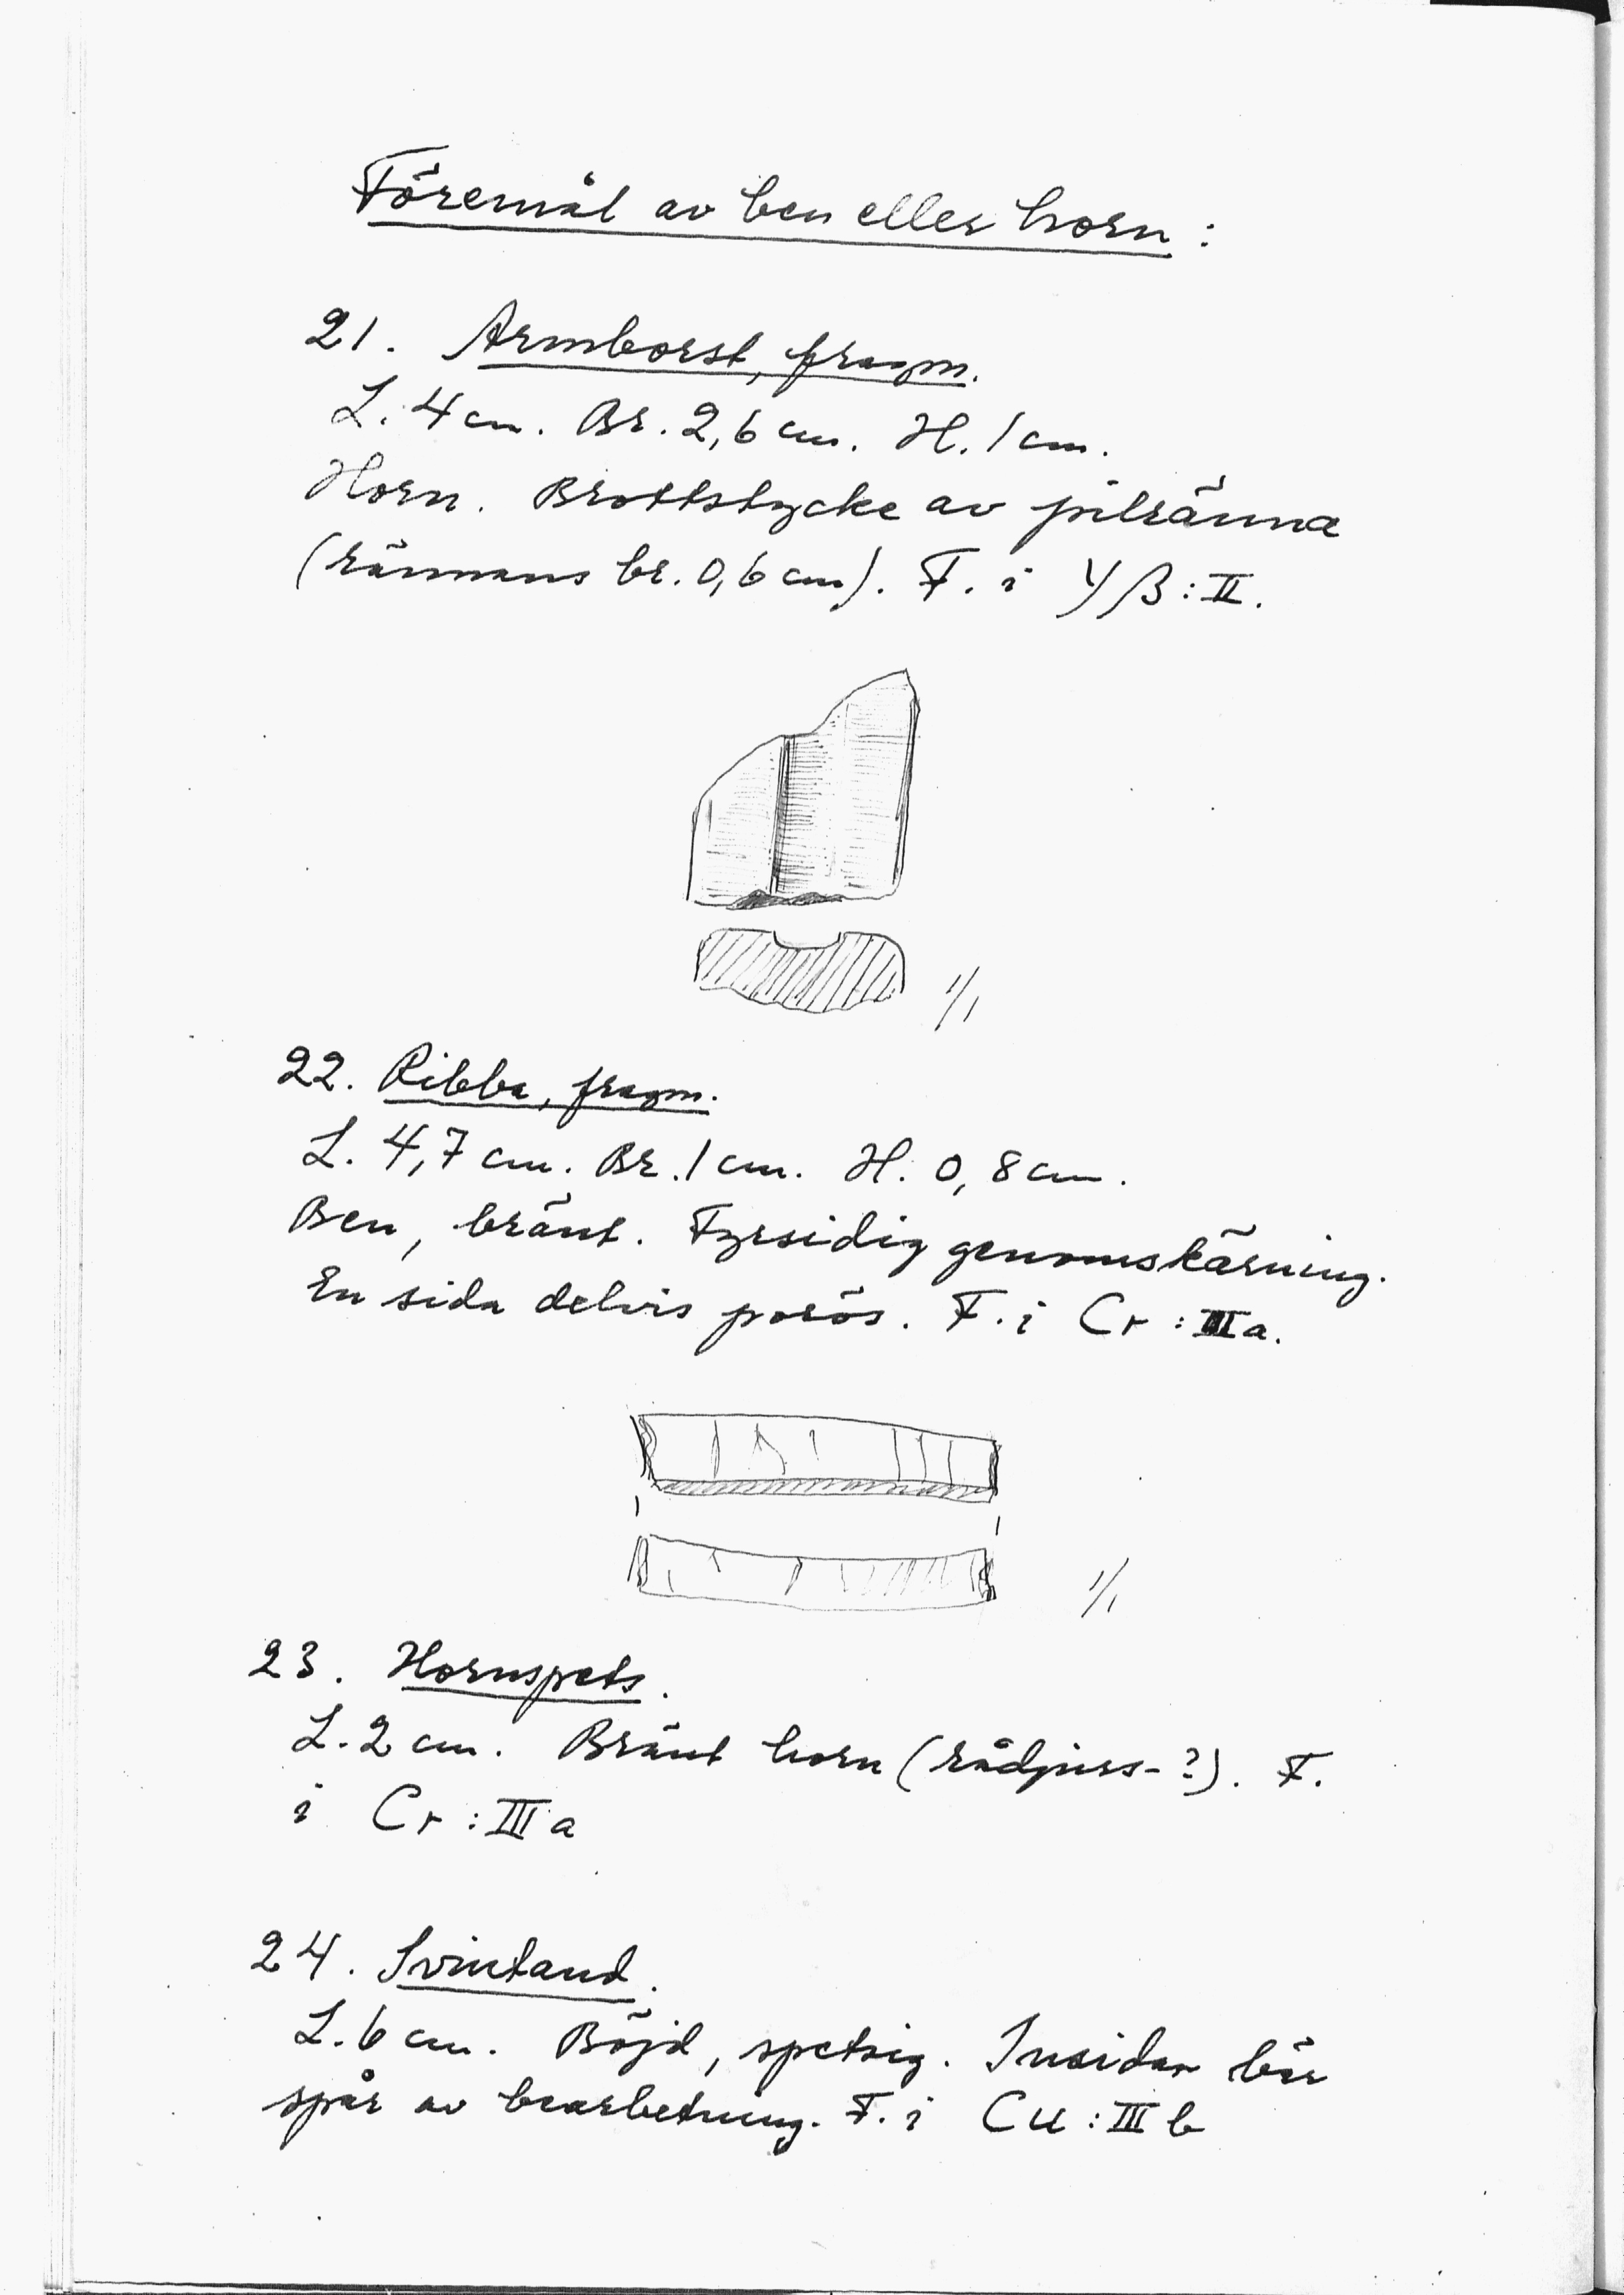 Föremål av ben eller horn:
21. Armborst, fragm.
L. 4 cm. Br. 2,6 cm. H. 1 cm.
Horn. Brottstycke av pilränna
(rännans br. 0,6 cm). F. i Yβ:II.
1/1
22. Ribba, fragm.
L. 4,7 cm. Br. 1 cm. H. 0,8 cm.
Ben, bränt. Fyrsidig genomskärning.
En sida delvis porös. F. i Cr:IIIa.
1/1
23. Hornspets.
L. 2 cm. Bränt horn (rådjurs-?). F.
i Cr:IIIa
24. Svintand.
L. 6 cm. Böjd, spetsig. Insidan bär
spår av bearbetning. F. i Cu:IIIb